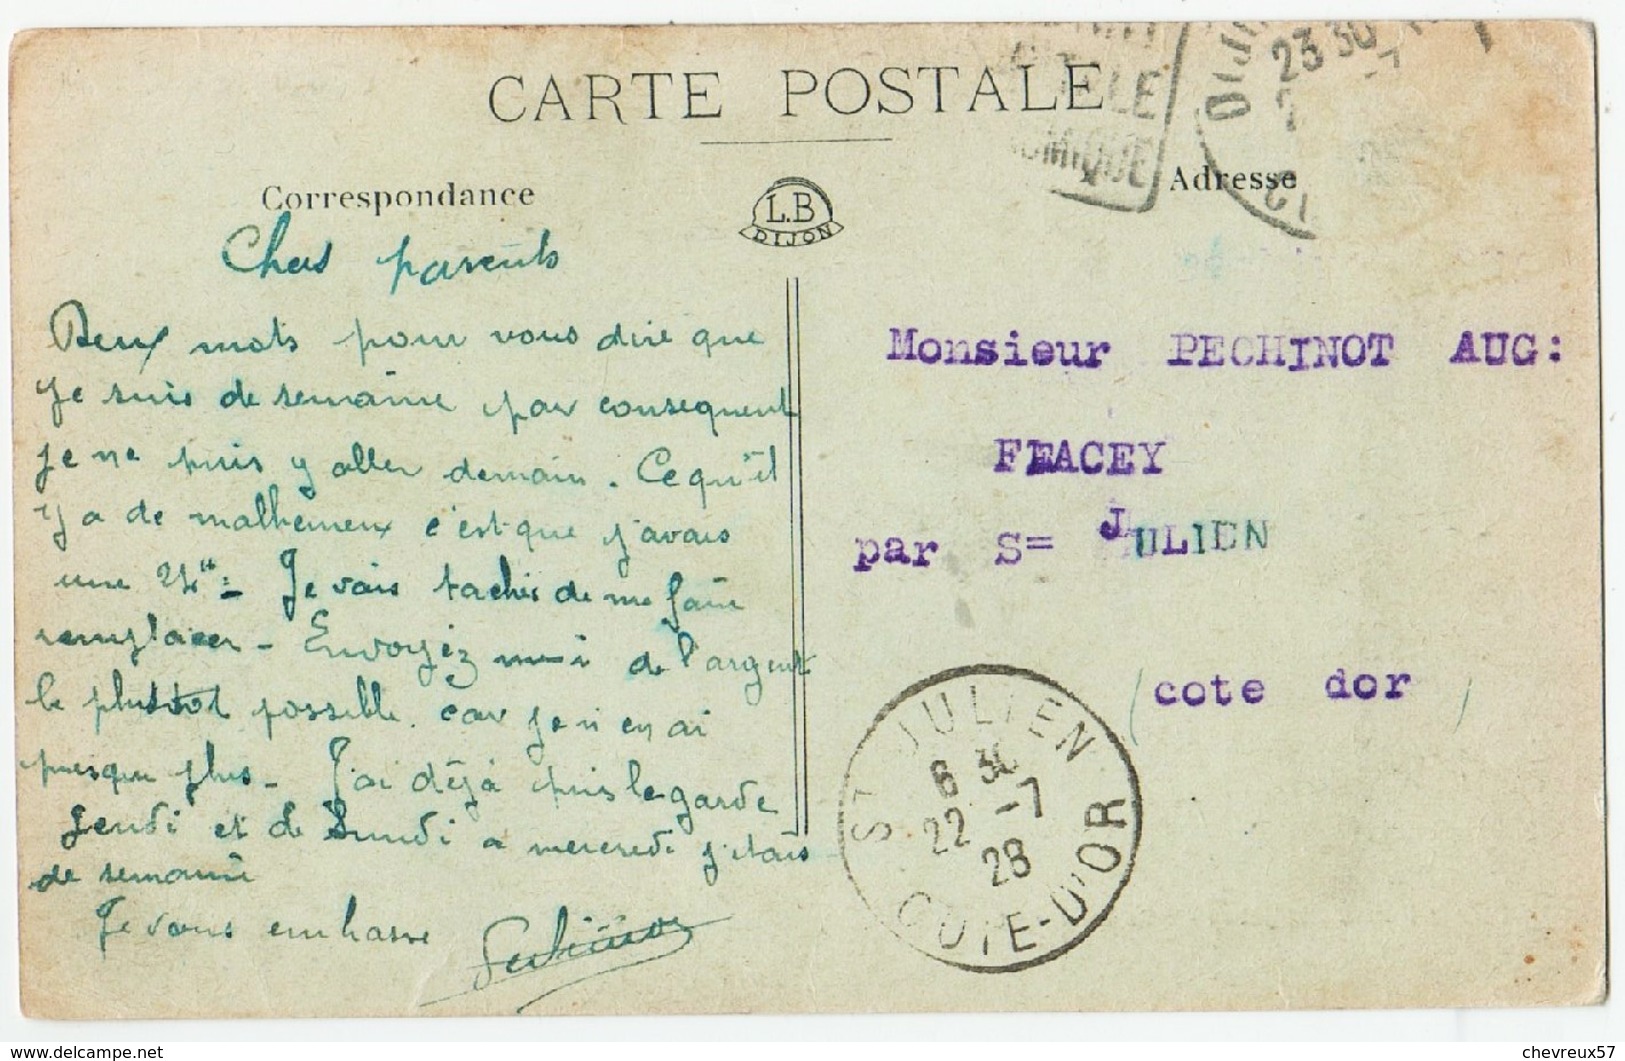 CARTE POSTALE
Correspondance
L.B
DIJON
Adresse
DIJON
23 30
Chers parents
Deux mots pour vous dire que
je suis de semaine par consequent
je ne puis y aller demain. Ce qu'il
y a de malheureux c'est que j'avais
une 24h = Je vais tacher de me faire
remplacer - Envoyez moi de l'argent
le plustot possible. car je n'en ai
presque plus - J'ai déjà pris la garde
Jeudi et de Lundi a mercredi j'étais
de semaine
Je vous embrasse
Monsieur PECHINOT AUG:
FLACEY
par S= JULIEN
(cote dor)
ST JULIEN
6 30
22 -7
28
COTE-D'OR
chevreux57